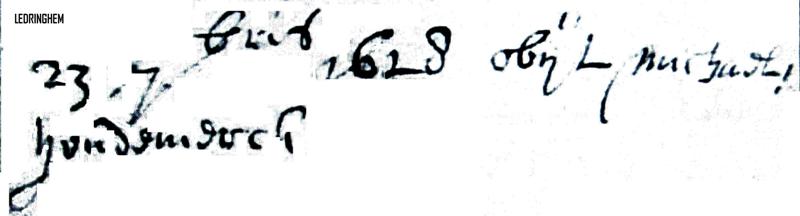 LEDRINGHEM
23. 7 bris 1628 obijt michael
hondemerck